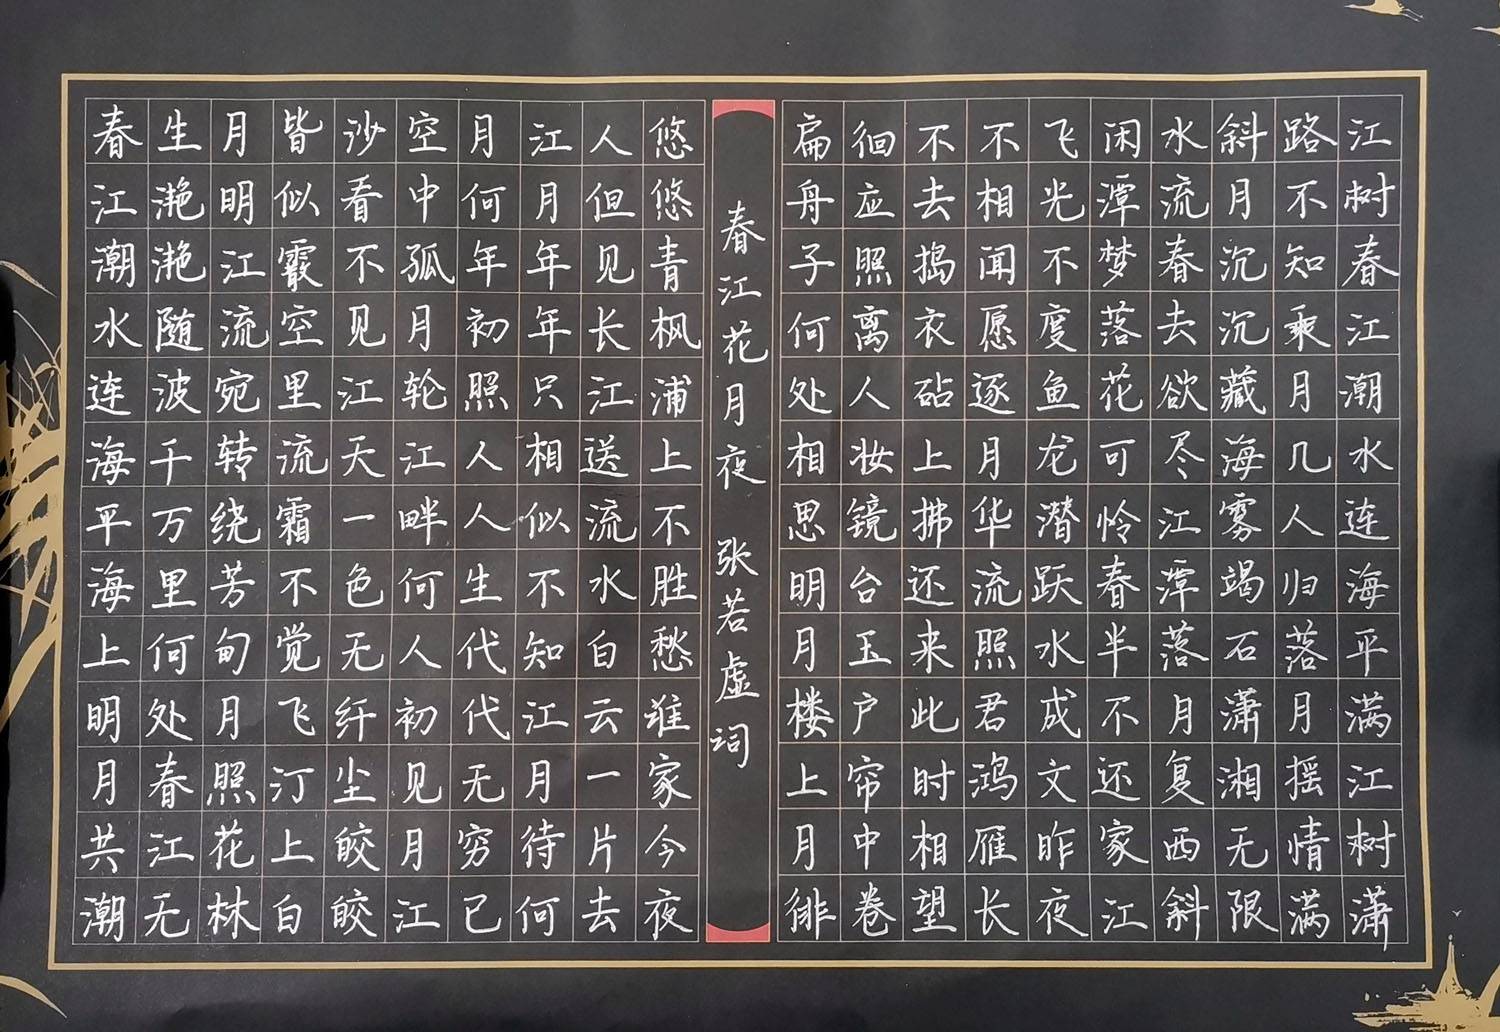 春江潮水连海平海上明月共潮
生滟滟随波千万里何处春江无
月明江流宛转绕芳甸月照花林
皆似霰空里流霜不觉飞汀上白
沙看不见江天一色无纤尘皎皎
空中孤月轮江畔何人初见月江
月何年初照人人生代代无穷已
江月年年只相似不知江月待何
人但见长江送流水白云一片去
悠悠青枫浦上不胜愁谁家今夜
春江花月夜 张若虚词
扁舟子何处相思明月楼上月徘
徊应照离人妆镜台玉户帘中卷
不去捣衣砧上拂还来此时相望
不相闻愿逐月华流照君鸿雁长
飞光不度鱼龙潜跃水成文昨夜
闲潭梦落花可怜春半不还家江
水流春去欲尽江潭落月复西斜
斜月沉沉藏海雾竭石潇湘无限
路不知乘月几人归落月摇情满
江树春江潮水连海平满江树潇